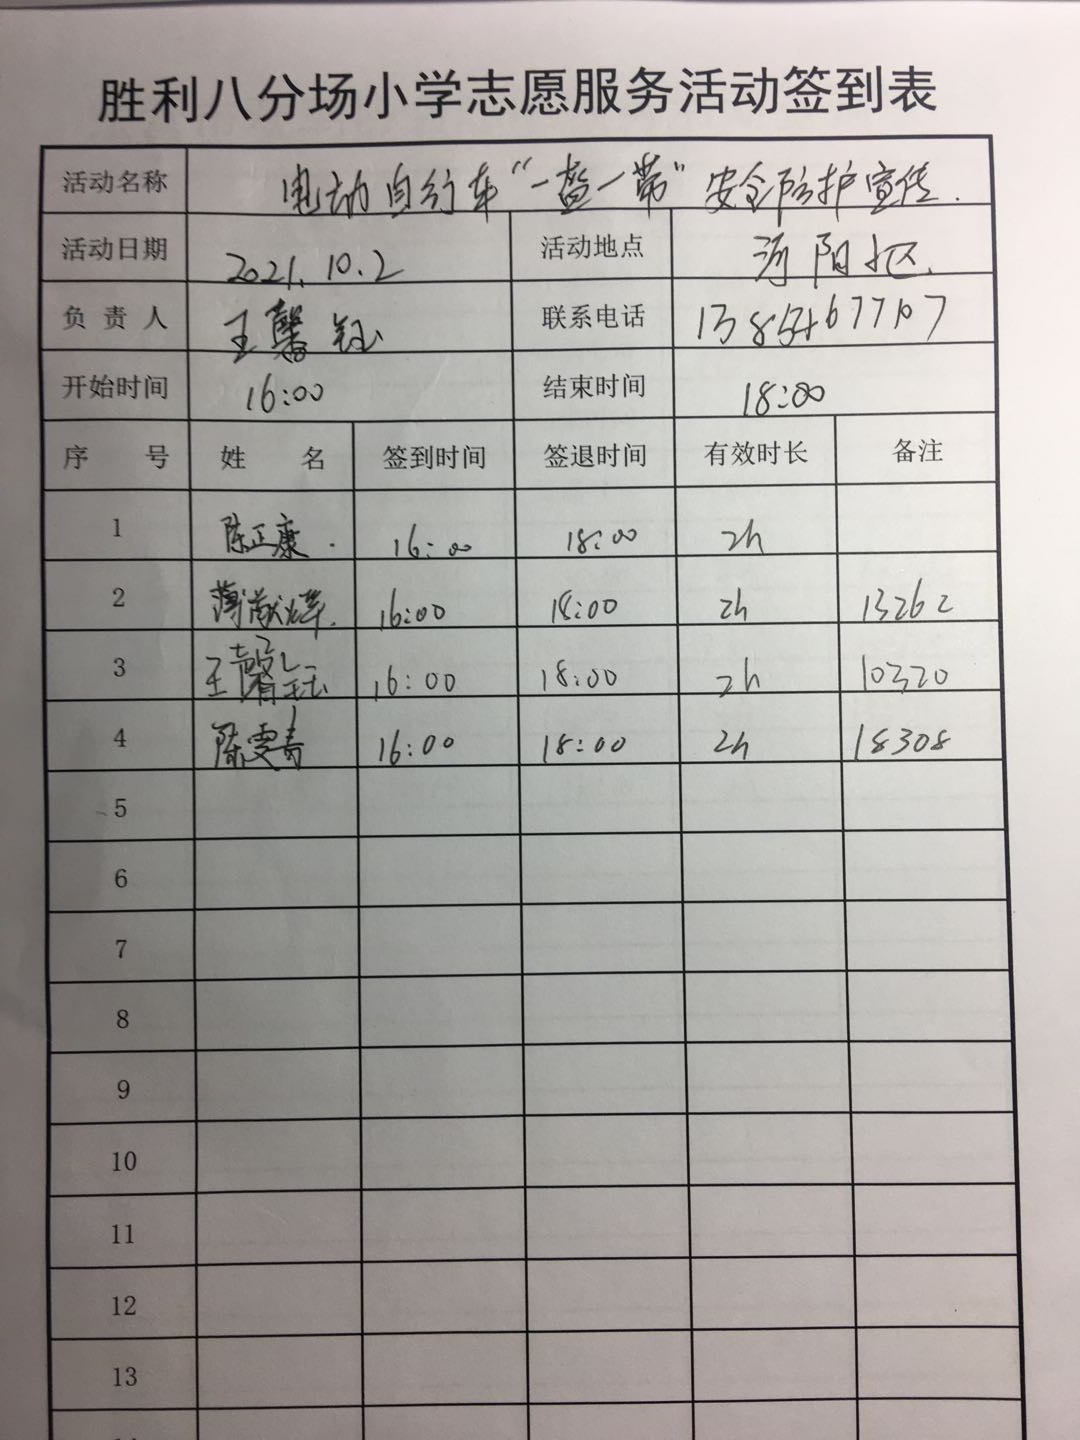 胜利八分场小学志愿服务活动签到表
活动名称 电动自行车“一盔一带”安全防护宣传.
活动日期 2021.10.2 活动地点 河阳社区.
负责人 王馨钰 联系电话
开始时间 16:00 结束时间 18:00
序号 姓名 签到时间 签退时间 有效时长 备注
1 陈正康. 16:00 18:00 2h
2 16:00 18:00 2h 13262
3 王馨钰 16:00 18:00 2h 10320
4 陈雯青 16:00 18:00 2h 18308
5
6
7
8
9
10
11
12
13